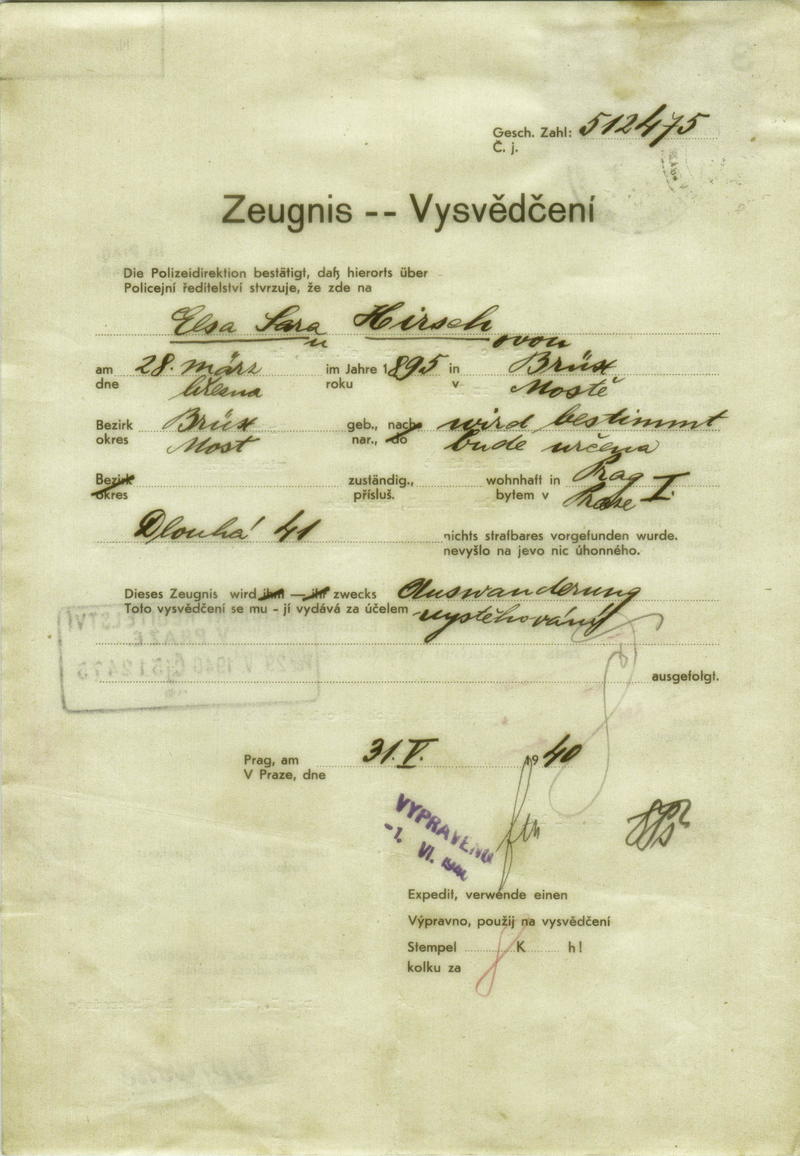 Gesch. Zahl: 512475
Č. j.
Zeugnis -- Vysvědčení
Die Polizeidirektion bestätigt, daß hierorts über
Policejní ředitelství stvrzuje, že zde na
Elsa Sara Hirsch
u ovou
am 28. März im Jahre 1895 in Brüx
dne března roku v Mostě
Bezirk Brüx geb., nach wird bestimmt
okres Most nar., do bude určena
Bezirk zuständig., wohnhaft in Prag I.
okres přísluš. bytem v Praze
Dlouhá 41 nichts strafbares vorgefunden wurde.
nevyšlo na jevo nic úhonného.
Dieses Zeugnis wird ihm — ihr zwecks Auswanderung
Toto vysvědčení se mu - jí vydává za účelem vystěhování
ausgefolgt.
Prag, am 31. V. 1940
V Praze, dne
VYPRAVENO
-1. VI. 1940
Expedit, verwende einen
Výpravno, použij na vysvědčení
Stempel K h!
kolku za